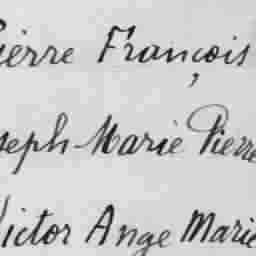 ierre François
seph-Marie Pierre
Victor Ange Marie